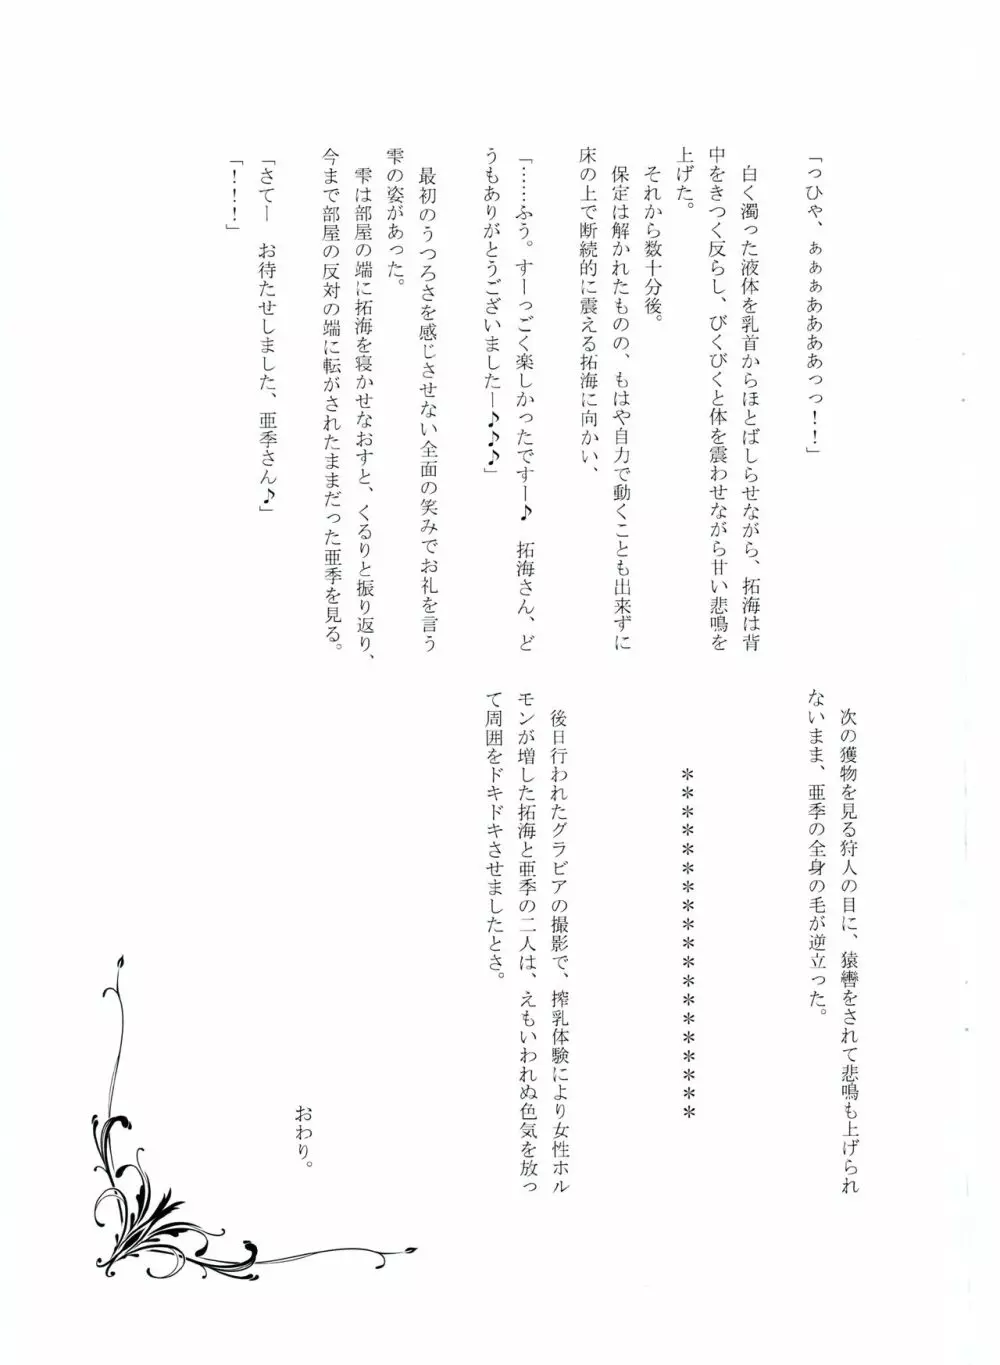 「っひゃ、ぁぁぁああああっっ！！」
白く濁った液体を乳首からほとばしらせながら、拓海は背
中をきつく反らし、びくびくと体を震わせながら甘い悲鳴を
上げた。
それから数十分後。
保定は解かれたものの、もはや自力で動くことも出来ずに
床の上で断続的に震える拓海に向かい、
「……ふう。すーっごく楽しかったですー♪　拓海さん、ど
うもありがとうございましたー♪♪♪」
最初のうつろさを感じさせない全面の笑みでお礼を言う
雫の姿があった。
雫は部屋の端に拓海を寝かせなおすと、くるりと振り返り、
今まで部屋の反対の端に転がされたままだった亜季を見る。
「さてー　お待たせしました、亜季さん♪」
「！！！」
次の獲物を見る狩人の目に、猿轡をされて悲鳴も上げられ
ないまま、亜季の全身の毛が逆立った。
＊＊＊＊＊＊＊＊＊＊＊＊＊＊＊＊＊＊＊
後日行われたグラビアの撮影で、搾乳体験により女性ホル
モンが増した拓海と亜季の二人は、えもいわれぬ色気を放っ
て周囲をドキドキさせましたとさ。
おわり。